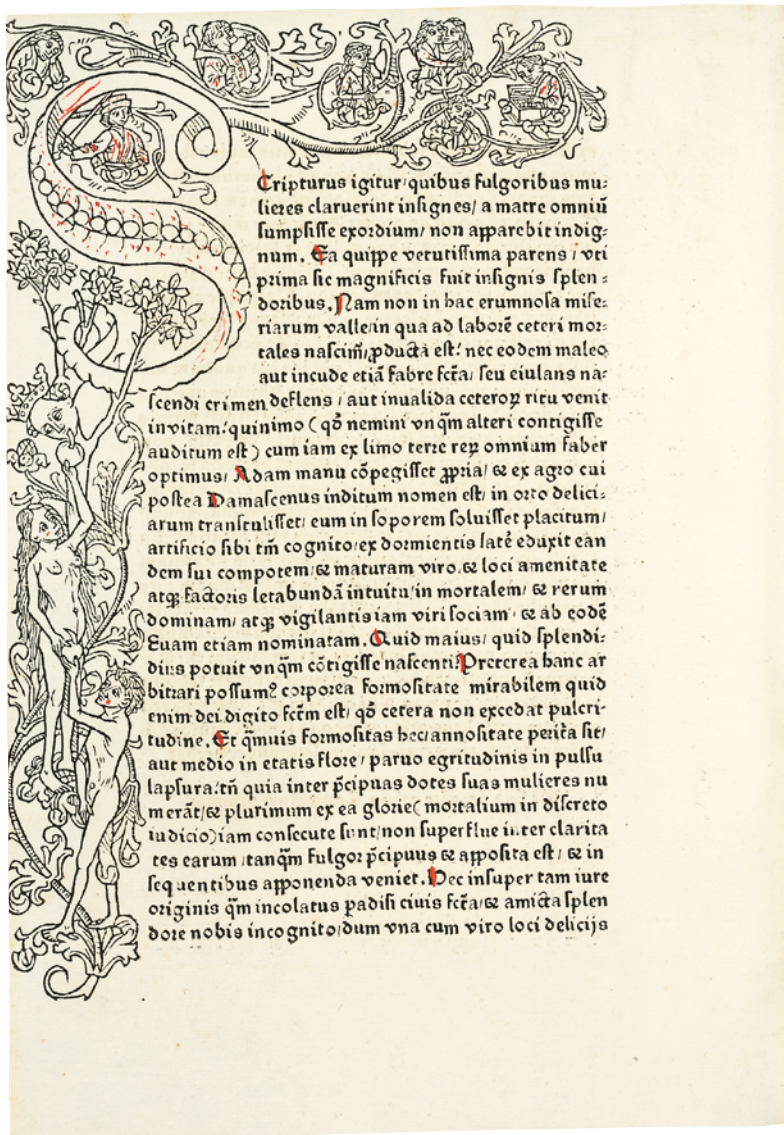 Scripturus igitur/quibus fulgoribus mu⸗
lieres claruerint insignes/a matre omniū
sumpsisse exordium/non apparebit indig⸗
num. Ea quippe vetutissima parens/vti
prima sic magnificis fuit insignis splen⸗
doribus. Nam non in hac erumnosa mise⸗
riarum valle/in qua ad laborē ceteri mor⸗
tales nascim᷒/ꝓducta est: nec eodem maleo
aut incude etiā fabre fcta/seu eiulans na⸗
scendi crimen deflens/aut inualida ceteroꝝ ritu venit
in vitam: quinimo (qd̄ nemini vnq̄m alteri contigisse
auditum est) cum iam ex limo terre reꝝ omnium faber
optimus/Adam manu cōpegisset ꝓpria/⁊ ex agro cui
postea Damascenus inditum nomen est/in orto delici⸗
arum transtulisset/eum in soporem soluisset placitum/
artificio sibi tm̄ cognito/ex dormientis latē eduxit ean
dem sui compotem/⁊ maturam viro/⁊ loci amenitate
atqꝫ factoris letabundā intuitu/in mortalem/⁊ rerum
dominam/atqꝫ vigilantis iam viri sociam/⁊ ab eodē
Euam etiam nominatam. Quid maius/quid splendi⸗
dius potuit vnq̄m cōtigisse nascenti? Preterea hanc ar
bitrari possum᷒ corporea formositate mirabilem quid
enim dei digito fctm̄ est/qd̄ cetera non excedat pulcri⸗
tudine. Et q̄muis formositas hec/annositate perita sit/
aut medio in etatis flore/paruo egritudinis in pulsu
lapsura: tn̄ quia inter p̄cipuas dotes suas mulieres nu
merāt/⁊ plurimum ex ea glorie (mortalium in discreto
iudicio) iam consecute sunt/non superflue inter clarita
tes earum/tanq̄m fulgor p̄cipuus ⁊ apposita est/⁊ in
sequentibus apponenda veniet. Hec insuper tam iure
originis q̄m incolatus padisi ciuis fcta/⁊ amicta splen
dore nobis incognito/dum vna cum viro loci delicijs